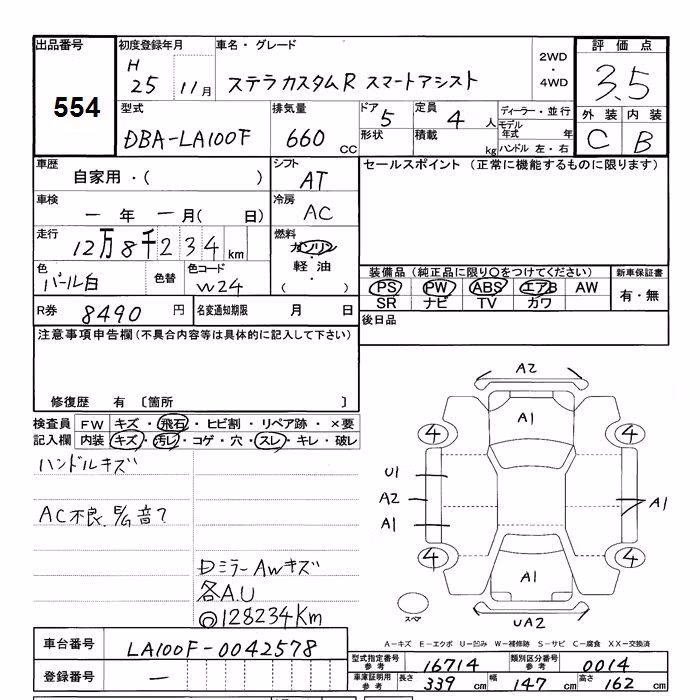 出品番号 初度登録年月 車名・グレード 2WD・4WD 評価点
554 H 25 11月 ステラカスタムR スマートアシスト 3.5
型式 排気量 ドア 定員 ディーラー・並行 外装 内装
DBA-LA100F 660 CC 5 4 人 モデル年式 年 C B
形状 積載 kg ハンドル 左・右
車歴 シフト セールスポイント (正常に機能するものに限ります)
自家用・( ) AT
車検 冷房
一 年 一 月( 日) AC
走行 燃料
12万8千234 km ガソリン
軽油
・
( )
色 色替 色コード 装備品(純正品に限り○をつけてください) 新車保証書
パール白 W24 PS PW ABS エアB AW 有・無
SR ナビ TV カワ
R券 8490 円 名変通知期限 月 日 後日品
注意事項申告欄(不具合内容等は具体的に記入して下さい)
修復歴 有 〔箇所 〕
検査員 FW キズ・飛石・ヒビ割・リペア跡・×要
記入欄 内装 キズ・汚レ・コゲ・穴・スレ・キレ・破レ
ハンドルキズ
AC不良 E/G音て
DミラーAwキズ
各A.U
◎128234Km
A2
A1
4 4
U1
A2 A1
A1
4 4
A1
スペア UA2
A-キズ E-エクボ U-凹み W-補修跡 S-サビ C-腐食 XX-交換済
車台番号 LA100F-0042578 型式指定番号 参考 16714 類別区分番号 参考 0014
登録番号 一 車庫証明用 参考 長さ 339 cm 幅 147 cm 高さ 162 cm